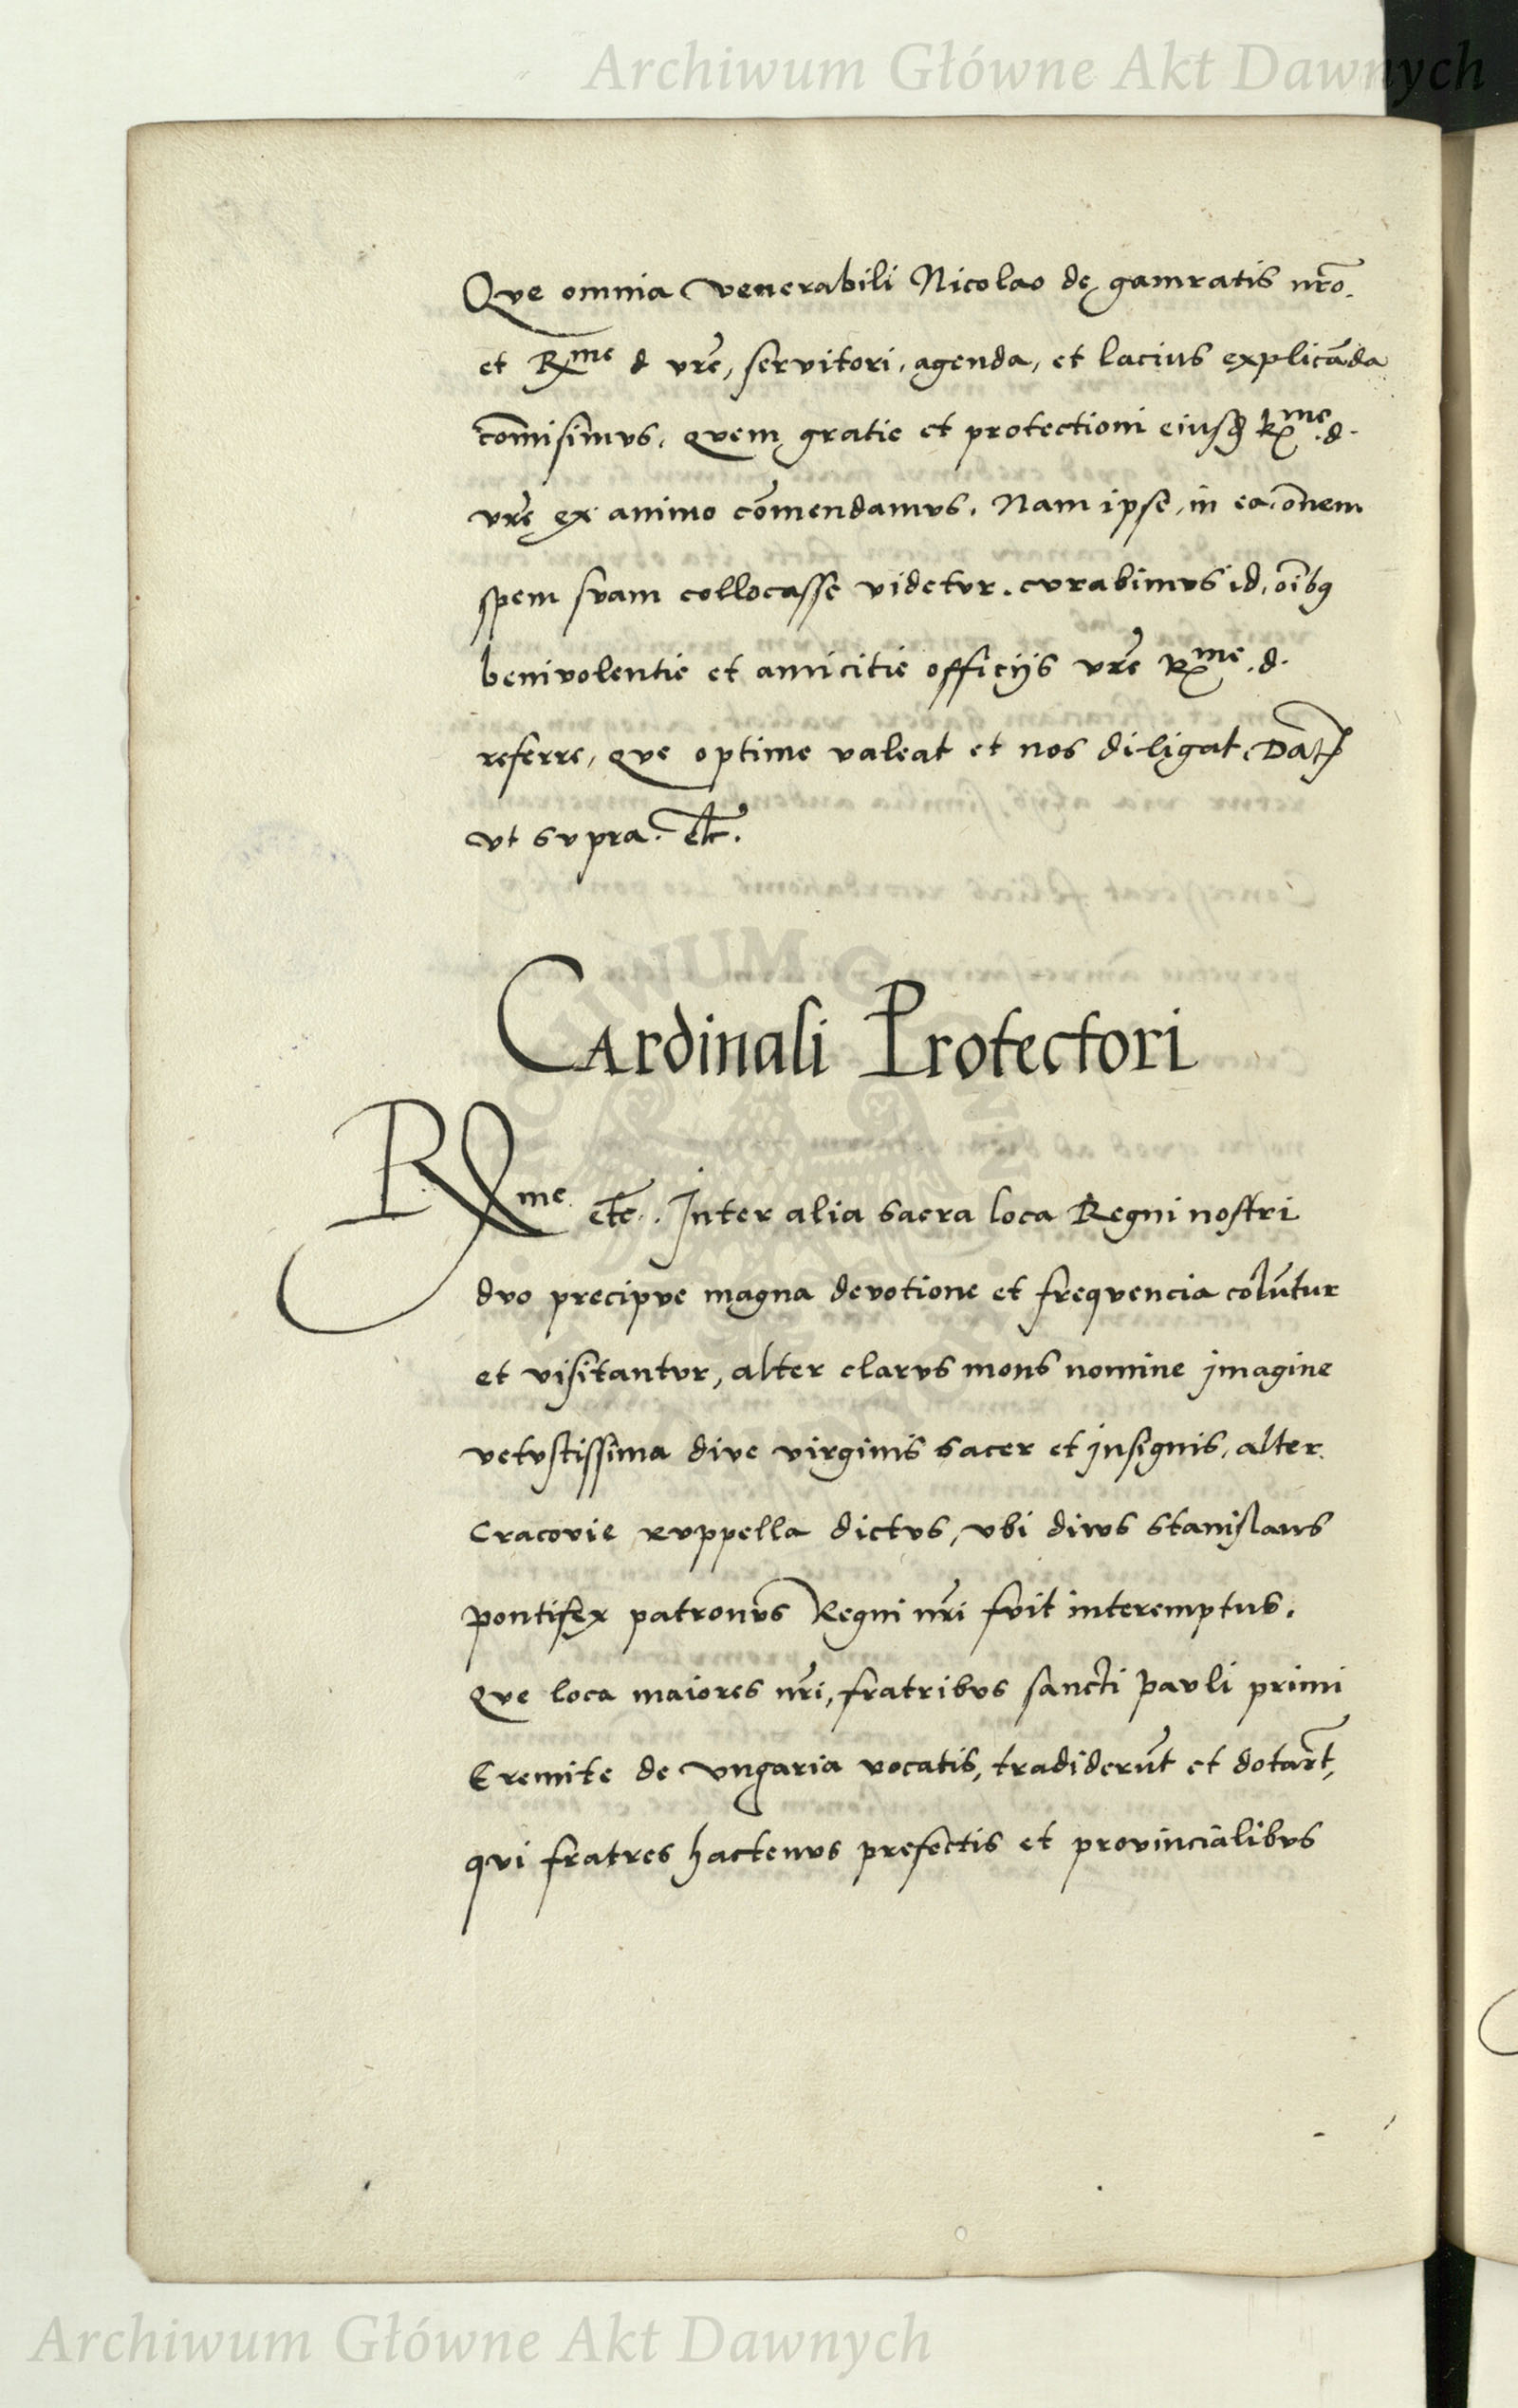 Archiwum Główne Akt Dawnych
Qve omnia venerabili Nicolao de gamratis nr̄o.
et Rme d vr̄e, servitori, agenda, et lacius explicāda
com̄isimvs, qvem gratie et protectioni eiusdꝫ Rme. d.
vr̄e ex animo cōmendamvs. Nam ipse, in ea, om̄nem
spem svam collocasse videtvr. cvrabimvs id, oībꝯ
benivolentie et amicitie officijs vr̄e Rme. d.
referre, qve optime valeat et nos diligat. Datꝭ
vt svpra. etc̄.
Cardinali Protectori
Rme etc̄. Inter alia sacra loca Regni nostri
dvo precipve magna devotione et freqvencia colūtur
et visitantvr, alter clarvs mons nomine jmagine
vetvstissima dive virginis sacer et jnsignis, alter
Cracovie rvppella dictvs, vbi divvs stanislavs
pontifex patronvs Regni nr̄i fvit interemptus.
Qve loca maiores nr̄i, fratribvs sancti pavli primi
Eremite de vngaria vocatis, tradiderūt et dotar̄t,
qvi fratres hactenvs prefectis et provincialibvs
Archiwum Główne Akt Dawnych